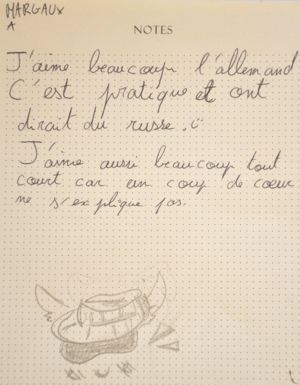 MARGAUX
A
NOTES
J'aime beaucoup l'allemand
C'est pratique et ont
dirait du russe. ü
J'aime aussi beaucoup tout
court car un coup de coeur
ne s'explique pas.